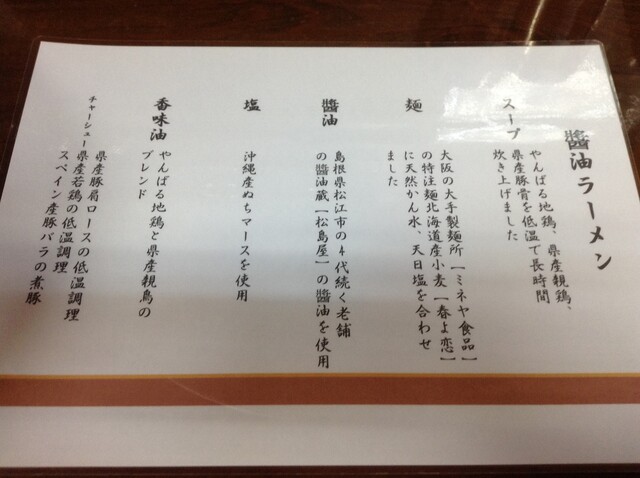 醬油ラーメン
スープ
やんばる地鶏、県産親鶏、
県産豚骨を低温で長時間
炊き上げました
麺
大阪の大手製麺所【ミネヤ食品】
の特注麺北海道産小麦【春よ恋】
に天然かん水、天日塩を合わせ
ました
醬油
島根県松江市の4代続く老舗
の醬油蔵【松島屋】の醬油を使用
塩
沖縄産ぬちマースを使用
香味油
やんばる地鶏と県産親鳥の
ブレンド
チャーシュー
県産豚肩ロースの低温調理
県産若鶏の低温調理
スペイン産豚バラの煮豚